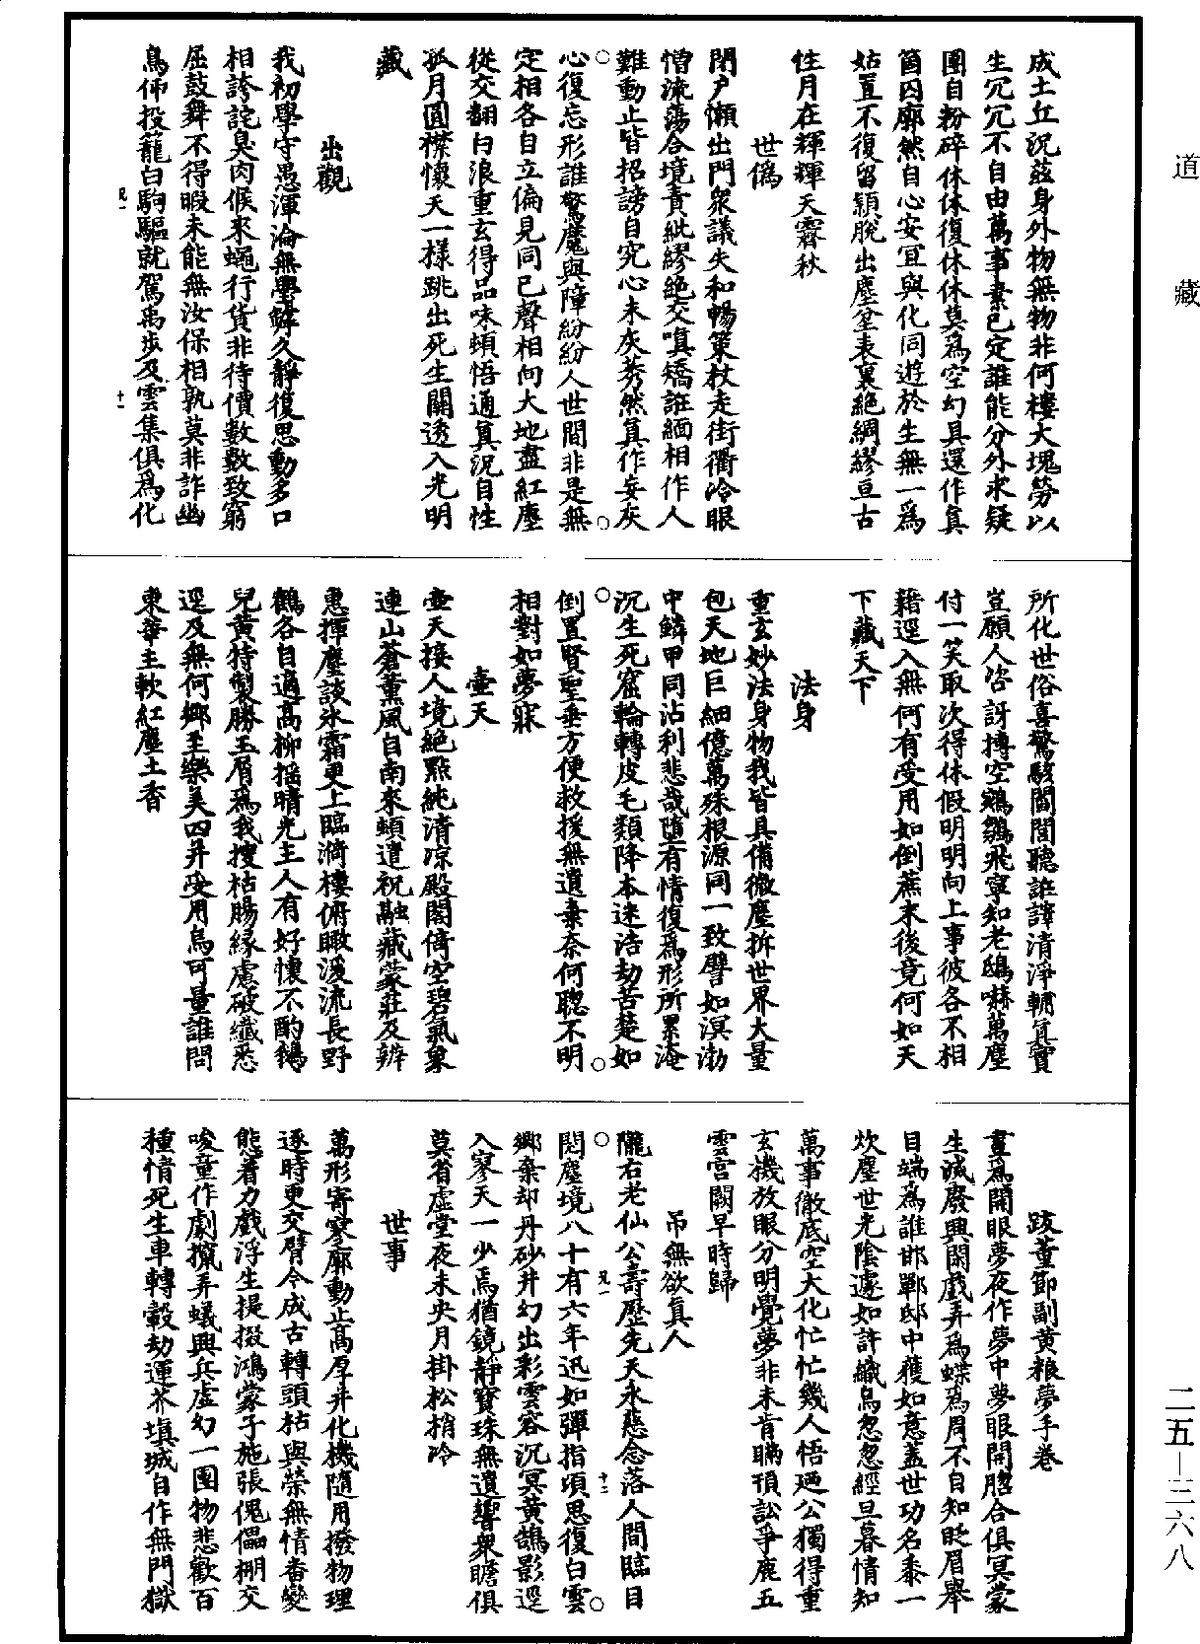 道藏
成土丘沉茲身外物無物非何樓大塊勞以
生冗冗不自由萬事素已定誰能分外求疑
團自粉碎休休復休休莫為空幻具還作真
箇囚廓然自心安宜與化同遊於生無一為
姑置不復留穎脫出塵坌表裏絕綢繆亘古
性月在輝輝天霽秋
世偽
閉户懶出門衆議失和暢策杖走街衢冷眼
憎流蕩合境責紕繆絕交嗔矯誑緬相作人
難動止皆招謗自究心未灰莠然真作妄灰
心復忘形誰驚魔與障紛紛人世間非是無
定相各自立偏見同己聲相向大地盡紅塵
從交翻白浪重玄得品味頓悟通真況自性
孤月圓襟懷天一樣跳出死生關透入光明
藏
出觀
我初學守愚渾淪無學解久靜復思動多口
相誇詫臭肉候來蠅行貨非待價數數致窮
屈鼓舞不得暇未能無汝保相孰莫非詐幽
鳥仰投籠白駒驅就駕禹步及雲集俱為化
所化世俗喜驚駭閭閻聽誼譁清淨輔真實
豈願人咨訝摶空鵷鶵飛寧知老鴟嚇萬塵
付一笑取次得休假明明向上事彼各不相
藉逕入無何有受用如倒蔗末後竟何如天
下藏天下
法身
重玄妙法身物我皆具備微塵拆世界大量
包天地巨細億萬殊根源同一致譬如溟渤
中鱗甲同沾利悲哉墮有情復為形所累淹
沉生死窟輪轉皮毛類降本迷浩劫苦楚如
倒置賢聖垂方便救援無遺棄奈何聰不明
相對如夢寐
壺天
壺天接人境絕點純清凉殿閣倚空碧氣象
連山蒼薰風自南來頓遣祝融藏蒙莊及辨
惠揮麈談氷霜更上臨漪樓俯瞰溪流長野
鶴各自適高柳搖晴光主人有好懷不酌鵝
兒黃特製勝玉屑為我搜枯腸緣慮破纖悉
逕及無何鄉至樂美四并受用烏可量誰問
東華主軟紅塵土香
跋董節副黄粮夢手卷
晝為開眼夢夜作夢中夢眼開胳合俱冥蒙
生滅廢興閑戲弄為蝶為周不自知眨眉舉
目端為誰邯鄲邸中獲如意蓋世功名黍一
炊塵世光陰遽如許纖烏忽忽經旦暮情知
萬事徹底空大化忙忙幾人悟廼公獨得重
玄機放眼分明覺夢非未肯瞞頇訟爭鹿五
雲宮闕早時歸
吊無欲真人
隴右老仙公壽歷先天永慈念落人間臨目
閱塵境八十有六年迅如彈指頃思復白雲
鄉棄却丹砂井幻出彩雲容沉冥黄鵠影逕
入寥天一少焉猶鏡靜寶珠無遺響衆瞻俱
莫省虛堂夜未央月掛松梢冷
世事
萬形寄寥廓動止高厚并化機隨用撥物理
逐時更交臂今成古轉頭枯與榮無情番變
態着力戲浮生提掇鴻蒙子施張傀儡棚交
唆童作劇攛弄蟻興兵虛幻一團物悲歡百
種情死生車轉轂劫運芥填城自作無門獄
二五—三六八